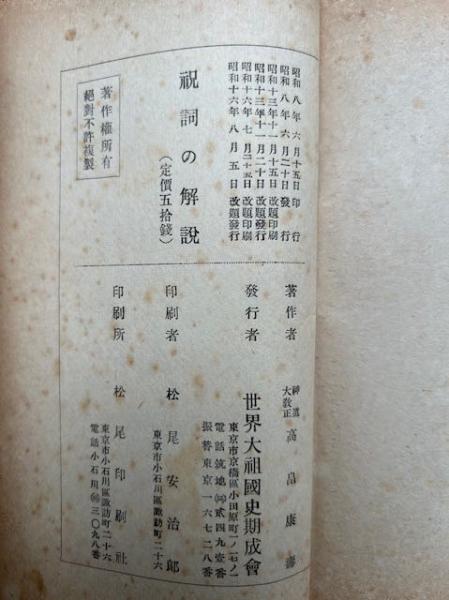 昭和八年六月十五日印行
昭和八年六月二十日發行
昭和十三年十一月十五日改題印刷
昭和十三年十一月二十日改題發行
昭和十六年七月三十五日改題印刷
昭和十六年八月五日改題發行
祝詞の解説
(定價五拾錢)
著作權所有
絕對不許複製
著作者
神道
大教正
高畠康壽
發行者
世界大祖國史期成會
東京市京橋區小田原町一ノ一七ノ一
電話築地㈣貳四九壹番
振替東京一六七二八番
印刷者 松尾安治郎
東京市小石川區諏訪町二十六
印刷所 松尾印刷社
東京市小石川區諏訪町二十六
電話小石川三〇九八番